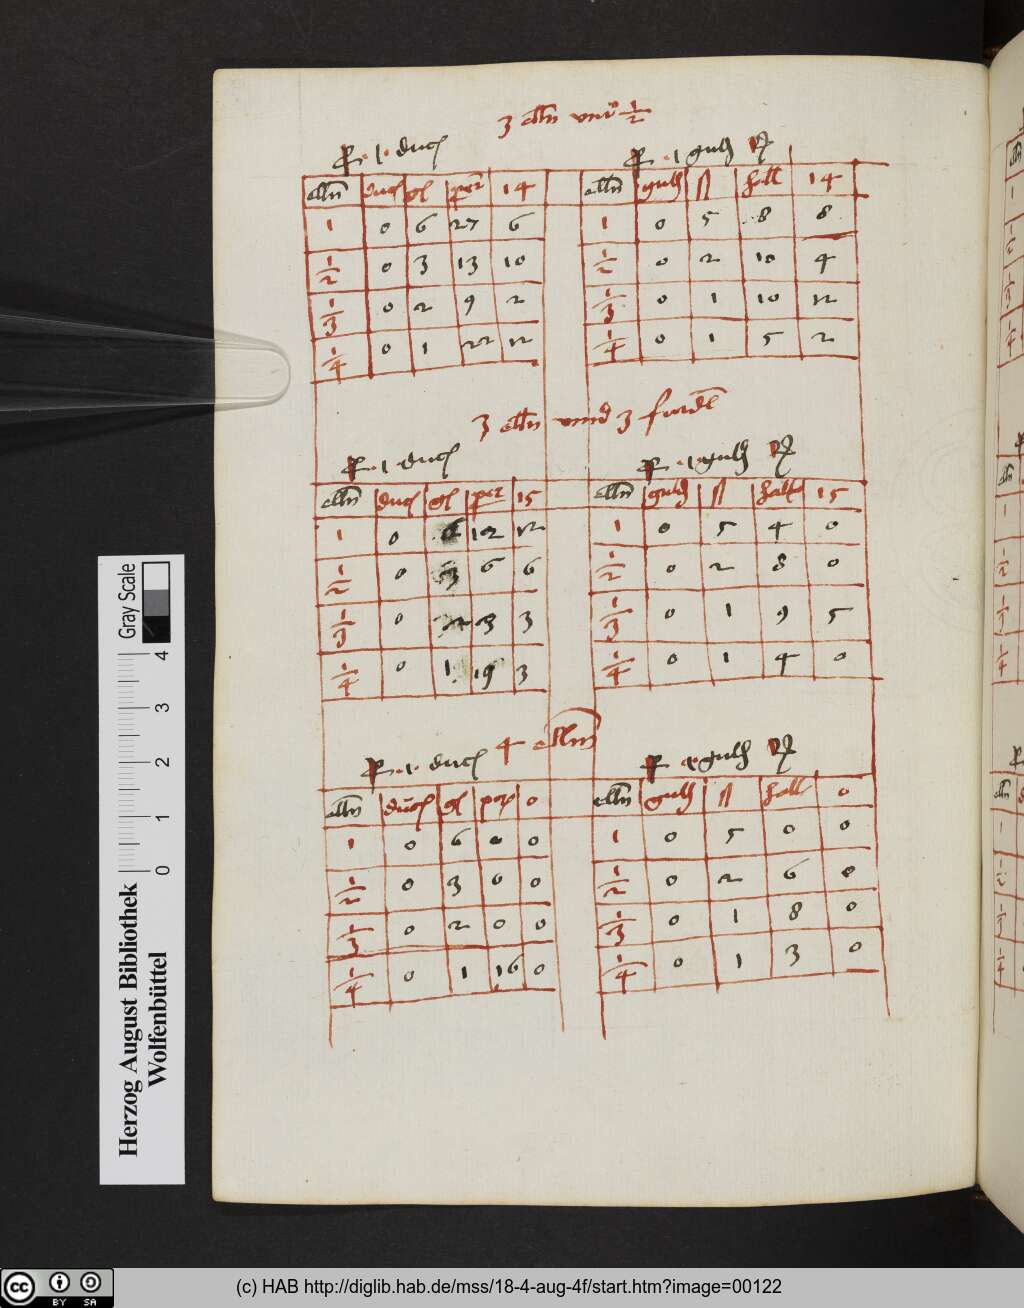 3 elln vnd 1/2
per · 1 · duc
per · 1 guld
elln duc gl per 14
1 0 6 27 6
1/2 0 3 13 10
1/3 0 2 9 2
1/4 0 1 22 12
elln guld ß hall 14
1 0 5 8 8
1/2 0 2 10 4
1/3 0 1 10 12
1/4 0 1 5 2
3 elln vnnd 3
per · 1 duc
per · 1 · guld
elln duc gl per 15
1 0 6 12 12
1/2 0 3 6 6
1/3 0 2 3 3
1/4 0 1 19 3
elln guld ß hall 15
1 0 5 4 0
1/2 0 2 8 0
1/3 0 1 9 5
1/4 0 1 4 0
4 elln
per · 1 · duc
per · 1 · guld
elln duc gl per 0
1 0 6 0 0
1/2 0 3 0 0
1/3 0 2 0 0
1/4 0 1 16 0
elln guld ß hall 0
1 0 5 0 0
1/2 0 2 6 0
1/3 0 1 8 0
1/4 0 1 3 0
Herzog August Bibliothek
Wolfenbüttel
0 1 2 3 4
Gray Scale
cc BY SA
(c) HAB http://diglib.hab.de/mss/18-4-aug-4f/start.htm?image=00122